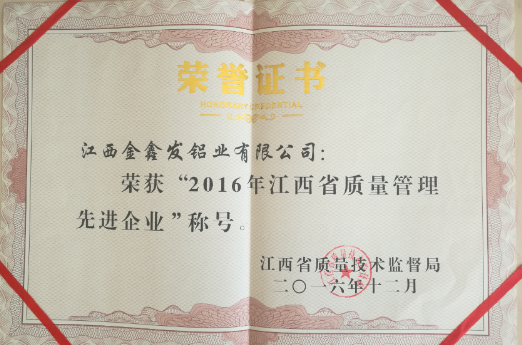 荣誉证书
HONORARY CREDENTIAL
江西金鑫发铝业有限公司：
荣获“2016年江西省质量管理
先进企业”称号。
江西省质量技术监督局
二〇一六年十二月